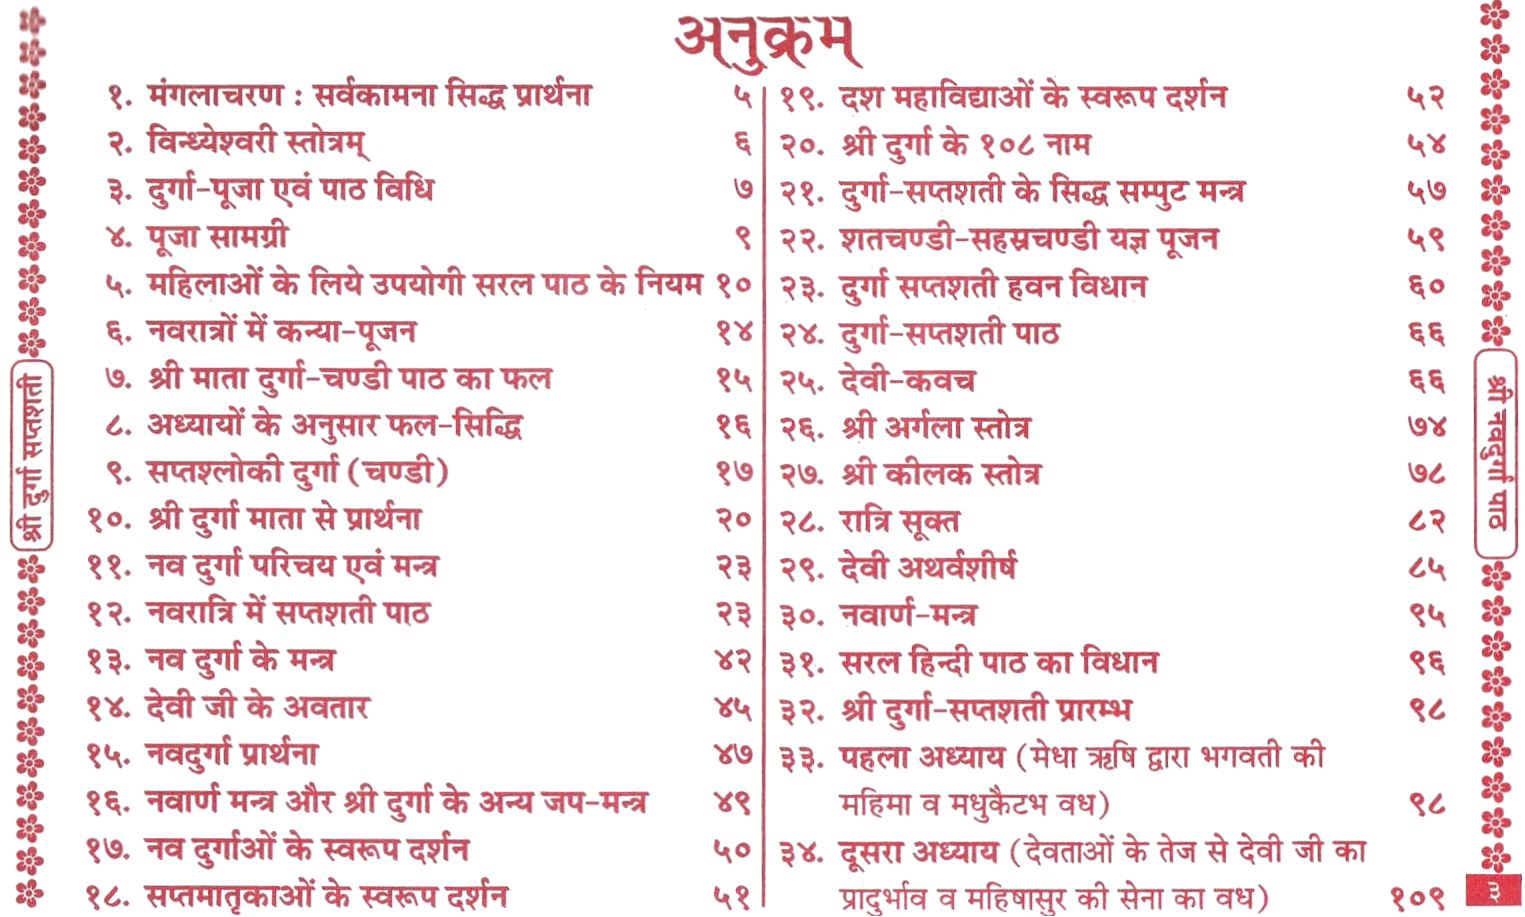 अनुक्रम
१. मंगलाचरण : सर्वकामना सिद्ध प्रार्थना ५
२. विन्ध्येश्वरी स्तोत्रम् ६
३. दुर्गा-पूजा एवं पाठ विधि ७
४. पूजा सामग्री ९
५. महिलाओं के लिये उपयोगी सरल पाठ के नियम १०
६. नवरात्रों में कन्या-पूजन १४
७. श्री माता दुर्गा-चण्डी पाठ का फल १५
८. अध्यायों के अनुसार फल-सिद्धि १६
९. सप्तश्लोकी दुर्गा (चण्डी) १७
१०. श्री दुर्गा माता से प्रार्थना २०
११. नव दुर्गा परिचय एवं मन्त्र २३
१२. नवरात्रि में सप्तशती पाठ २३
१३. नव दुर्गा के मन्त्र ४२
१४. देवी जी के अवतार ४५
१५. नवदुर्गा प्रार्थना ४७
१६. नवार्ण मन्त्र और श्री दुर्गा के अन्य जप-मन्त्र ४९
१७. नव दुर्गाओं के स्वरूप दर्शन ५०
१८. सप्तमातृकाओं के स्वरूप दर्शन ५१
१९. दश महाविद्याओं के स्वरूप दर्शन ५२
२०. श्री दुर्गा के १०८ नाम ५४
२१. दुर्गा-सप्तशती के सिद्ध सम्पुट मन्त्र ५७
२२. शतचण्डी-सहस्रचण्डी यज्ञ पूजन ५९
२३. दुर्गा सप्तशती हवन विधान ६०
२४. दुर्गा-सप्तशती पाठ ६६
२५. देवी-कवच ६६
२६. श्री अर्गला स्तोत्र ७४
२७. श्री कीलक स्तोत्र ७८
२८. रात्रि सूक्त ८२
२९. देवी अथर्वशीर्ष ८५
३०. नवार्ण-मन्त्र ९५
३१. सरल हिन्दी पाठ का विधान ९६
३२. श्री दुर्गा-सप्तशती प्रारम्भ ९८
३३. पहला अध्याय (मेधा ऋषि द्वारा भगवती की
महिमा व मधुकैटभ वध) ९८
३४. दूसरा अध्याय (देवताओं के तेज से देवी जी का
प्रादुर्भाव व महिषासुर की सेना का वध) १०९
श्री दुर्गा सप्तशती
श्री नवदुर्गा पाठ
३